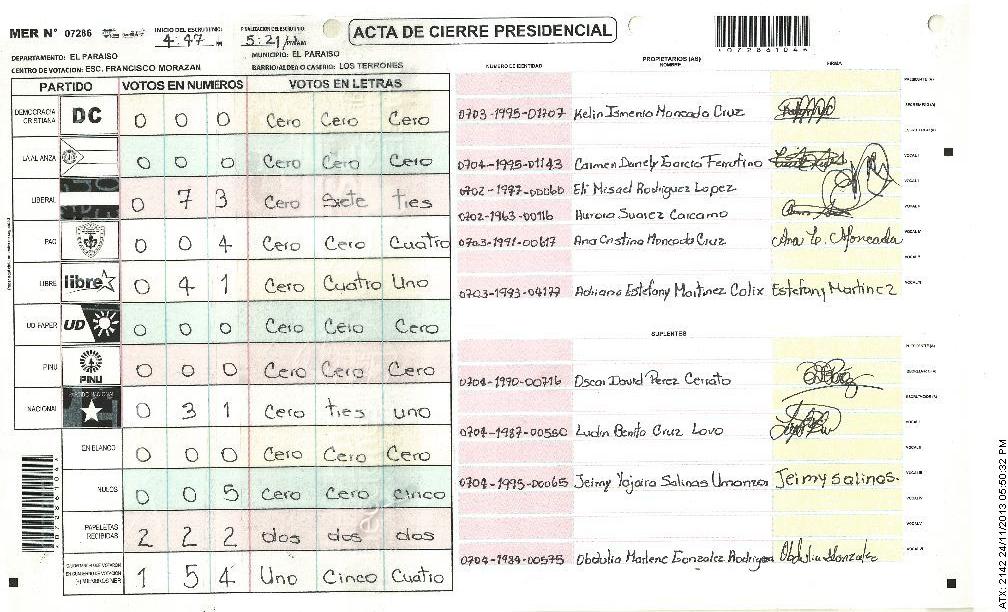 MER N° 07286
INICIO DEL ESCRUTINIO: 4:47 M
FINALIZACION DEL ESCRUTINIO: 5:21 PM/AM
ACTA DE CIERRE PRESIDENCIAL
07286104
DEPARTAMENTO: EL PARAISO
MUNICIPIO: EL PARAISO
CENTRO DE VOTACION: ESC. FRANCISCO MORAZAN
BARRIO/ALDEA O CASERIO: LOS TERRONES
PARTIDO VOTOS EN NUMEROS VOTOS EN LETRAS
DEMOCRACIA CRISTIANA DC 0 0 0 Cero Cero Cero
LA ALIANZA 0 0 0 Cero Cero Cero
LIBERAL 0 7 3 Cero Siete ties
PAC 0 0 4 Cero Cero Cuatro
LIBRE libre 0 4 1 Cero Cuatro Uno
UD FAPER UD 0 0 0 Cero Cero Cero
PINU PINU 0 0 0 Cero Cero Cero
NACIONAL 0 3 1 Cero ties uno
EN BLANCO 0 0 0 Cero Cero Cero
NULOS 0 0 5 Cero Cero cinco
PAPELETAS RECIBIDAS 2 2 2 dos dos dos
1 5 4 Uno Cinco Cuatro
PROPIETARIOS (AS)
NUMERO DE IDENTIDAD NOMBRE FIRMA
PRESIDENTE (A)
SECRETARIO(A)
0703-1995-01707 Kelin Ismenia Moncada Cruz
ESCRUTADOR (A)
0704-1995-01143 Carmen Danely Garcia Ferrufino VOCAL I
0702-1997-00060 Eli Misael Rodriguez Lopez
0702-1963-00116 Aurora Suarez Carcamo
0703-1991-00617 Ana Cristina Moncada Cruz Ana C. Moncada
0703-1993-04177 Adriana Estefany Martinez Calix Estefany Martinez
SUPLENTES
PRESIDENTE (A)
SECRETARIO (A)
0704-1990-00716 Oscar David Perez Cerrato
ESCRUTADOR (A)
0704-1987-00560 Ludin Benito Cruz Lovo
0704-1995-00065 Jeimy Yajaira Salinas Umanzor Jeimy salinas.
0704-1984-00575 Obdulia Marlene Gonzalez Rodrigue Obdulia Gonzalez
ATX: 2142 24/11/2013 05:50:32 PM